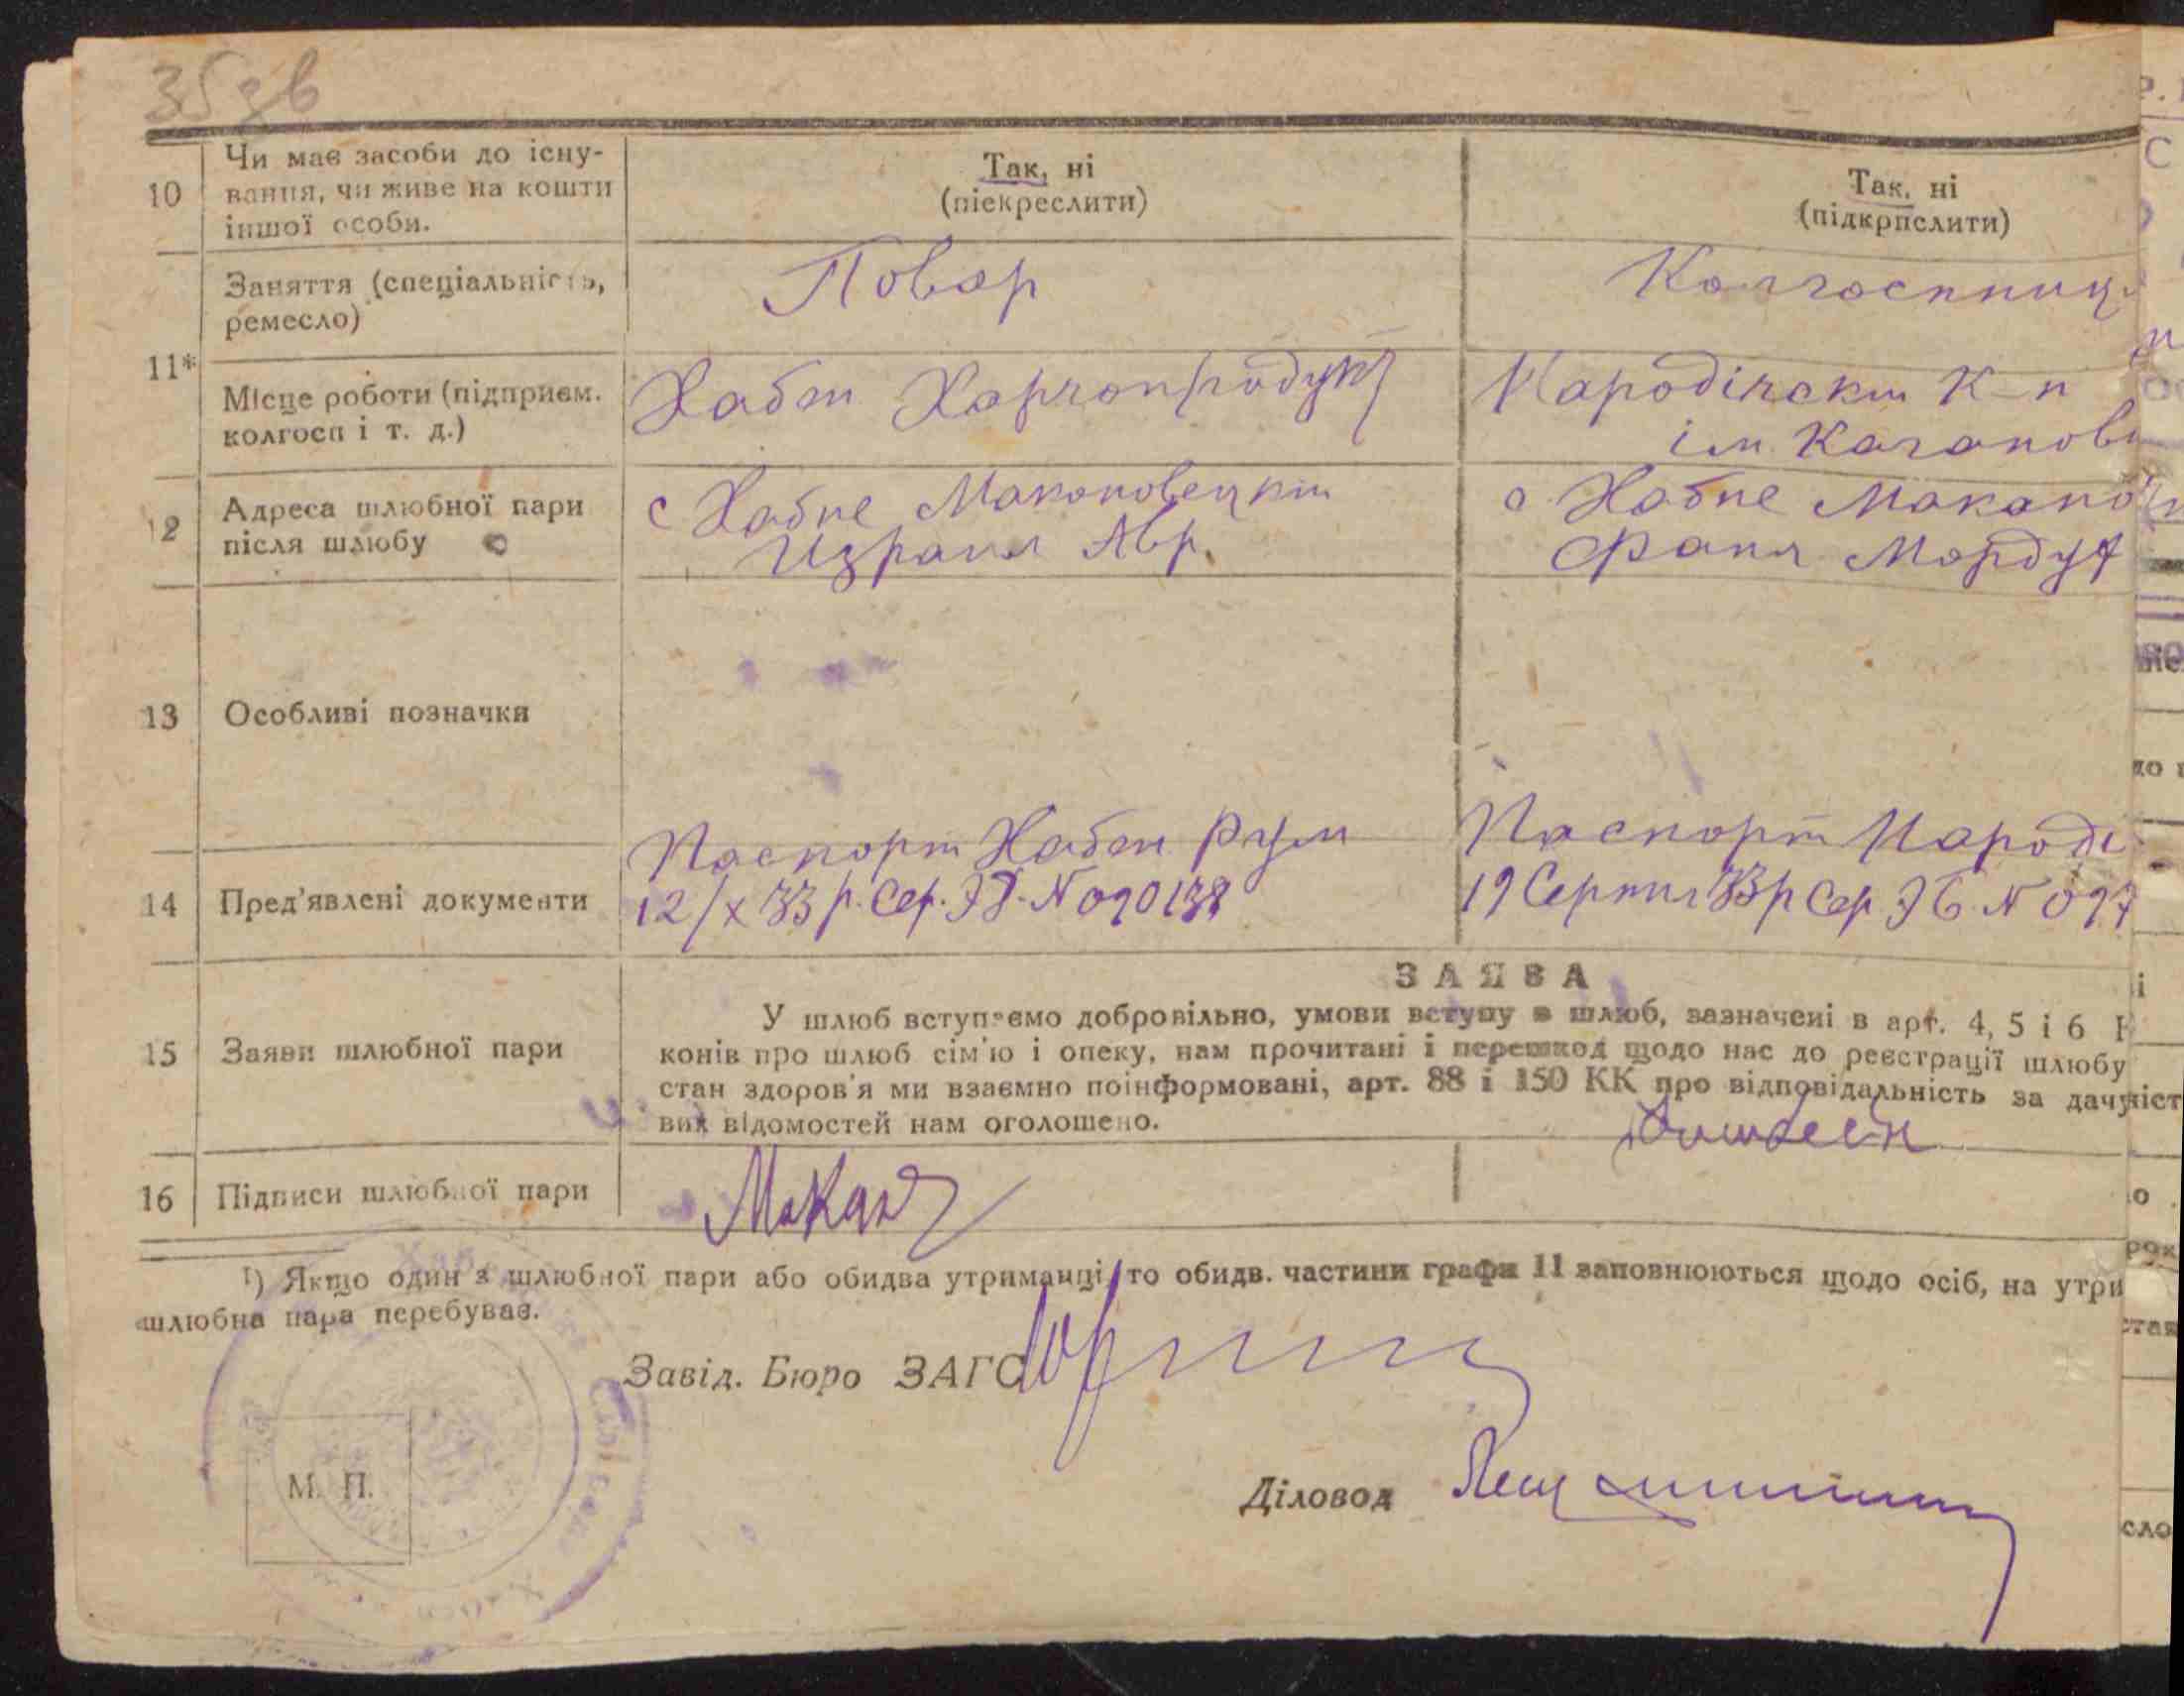 35зв
10
Чи має засоби до існу-
вання, чи живе на кошти
іншої особи.
Так, ні
(піекреслити)
Так, ні
(підкрпслити)
11*
Заняття (спеціальність,
ремесло)
Повар
Колгоспниц
Місце роботи (підприєм.
колгосп і т. д.)
Хабен Харчопродукт
Народіческ К-п
ім. Каганови
12
Адреса шлюбної пари
після шлюбу
с Хабне Макановецкий
Израил Авр.
с. Хабне Макано
Фаня Мордух
13
Особливі позначки
14
Пред'явлені документи
Паспорт Хабен Рум
12/х 33 р. Сер. ЭБ. N 090138
Паспорт Народі
19 Серпня 33р Сер ЭБ. N 097
15
Заяви шлюбної пари
ЗАЯВА
У шлюб вступаємо добровільно, умови вступу в шлюб, зазначені в арт. 4, 5 і 6
конів про шлюб сім'ю і опеку, нам прочитані і перешкод щодо нас до реєстрації шлюбу
стан здоров'я ми взаємно поінформовані, арт. 88 і 150 КК про відповідальність за дачу
вих відомостей нам оголошено.
16
Підписи шлюбної пари
Макан
¹) Якщо один з шлюбної пари або обидва утриманці, то обидв. частини графи 11 заповнюються щодо осіб, на утри
шлюбна пара перебуває.
Завід. Бюро ЗАГС
Діловод
М. П.